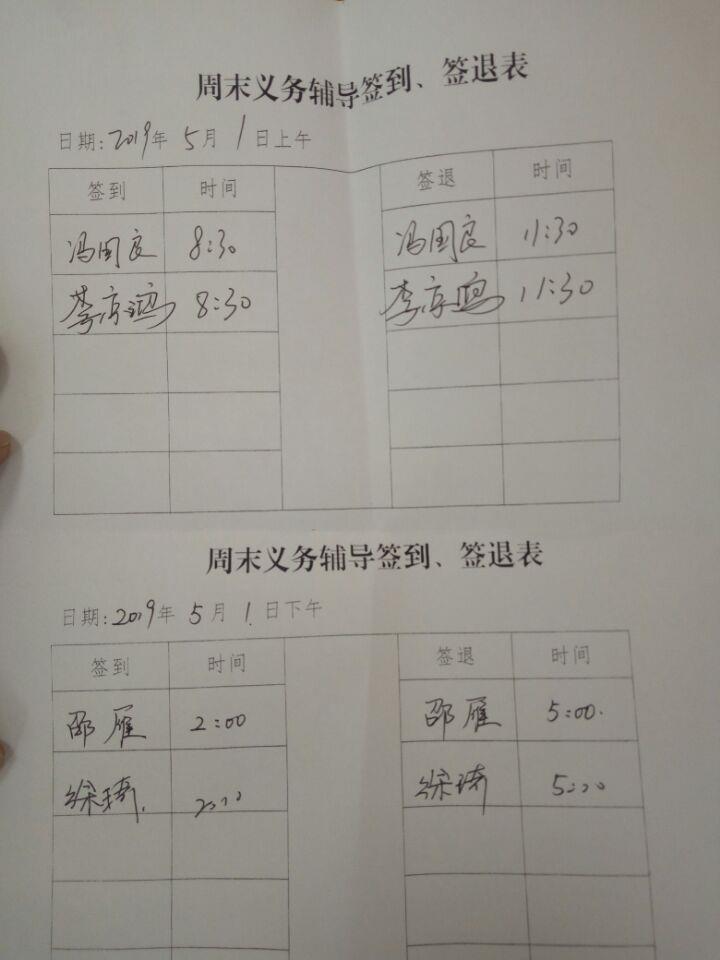 周末义务辅导签到、签退表
日期:2019年 5月 1日上午
签到 时间 签退 时间
冯国良 8:30 冯国良 11:30
李京鸿 8:30 李京鸿 11:30
周末义务辅导签到、签退表
日期:2019年 5月 1.日下午
签到 时间 签退 时间
邵雁 2:00 邵雁 5:00.
徐琦. 2:00 徐琦 5:00